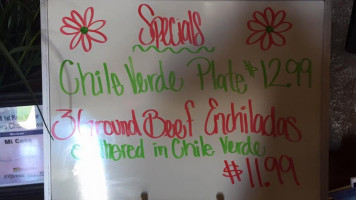 Specials
Chile Verde Plate $12.99
3 Ground Beef Enchiladas
Smothered in Chile Verde
$11.99
Mi Casa